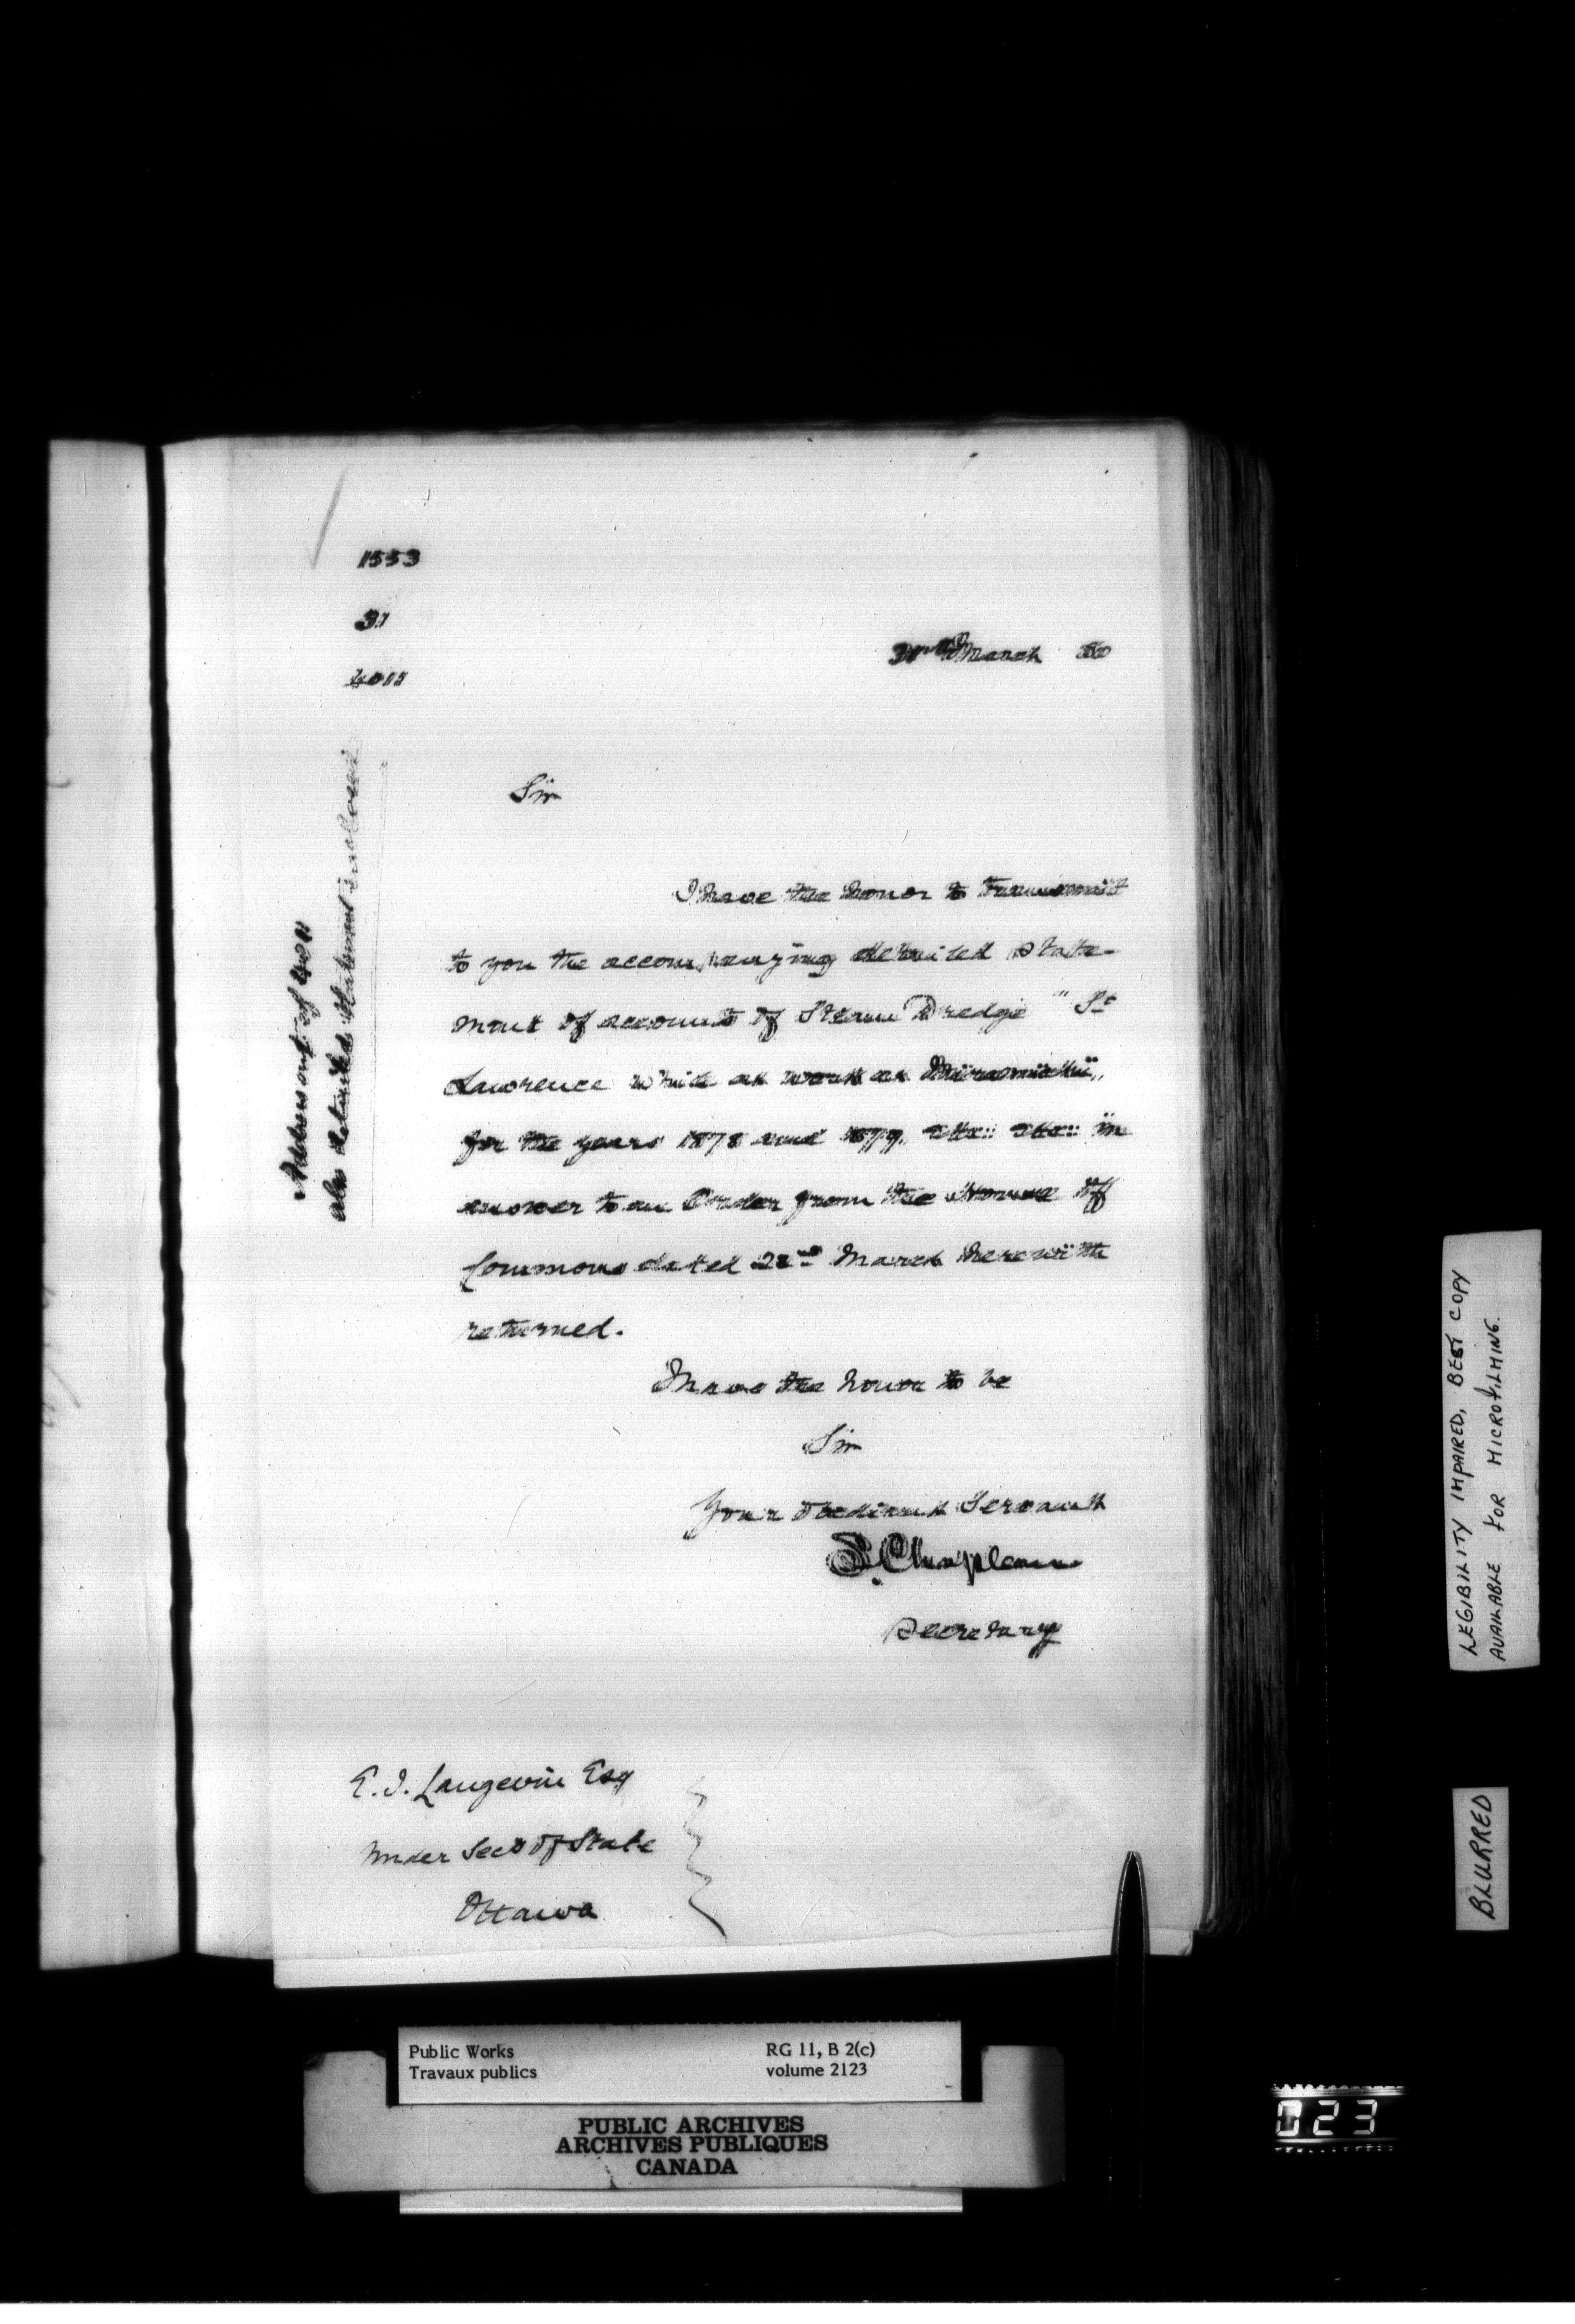 1553
31
4011
31st March 80
Sir
I have the honor to transmit
to you the accompanying detailed state-
ment of account of Steam Dredge "St
Lawrence while at work at Miramichi,,
for the years 1878 and 1879. etc:: etc:: in
answer to an Order from the House of
Commons dated 22nd March herewith
returned.
I have the honor to be
Sir
Your obedient Servant
S. Chapleau
Secretary
E. J. Langevin Esq
Under Secy of State
Ottawa
of 4011
also detailed Statement inclosed
LEGIBILITY IMPAIRED, BEST COPY
AVAILABLE FOR MICROFILMING.
BLURRED
Public Works RG 11, B 2(c)
Travaux publics volume 2123
PUBLIC ARCHIVES
ARCHIVES PUBLIQUES
CANADA
023